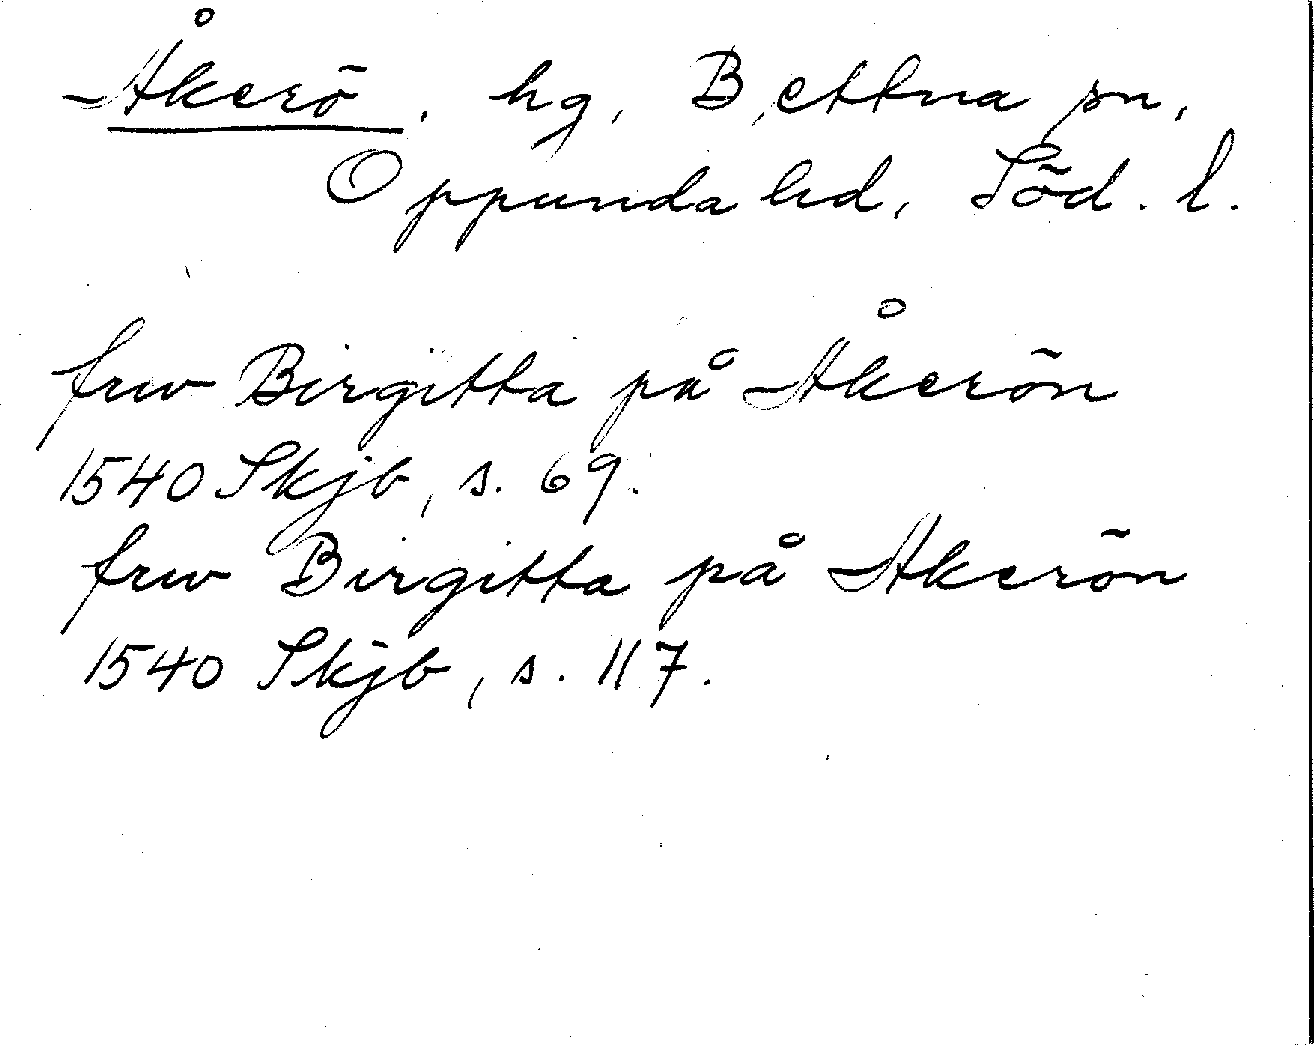 Åkerö, hg, Bettna sn,
Oppunda hd, Söd. l.
frw Birgitta på Åkerön
1540 Skjb, s. 69.
frw Birgitta på Åkerön
1540 Skjb, s. 117.